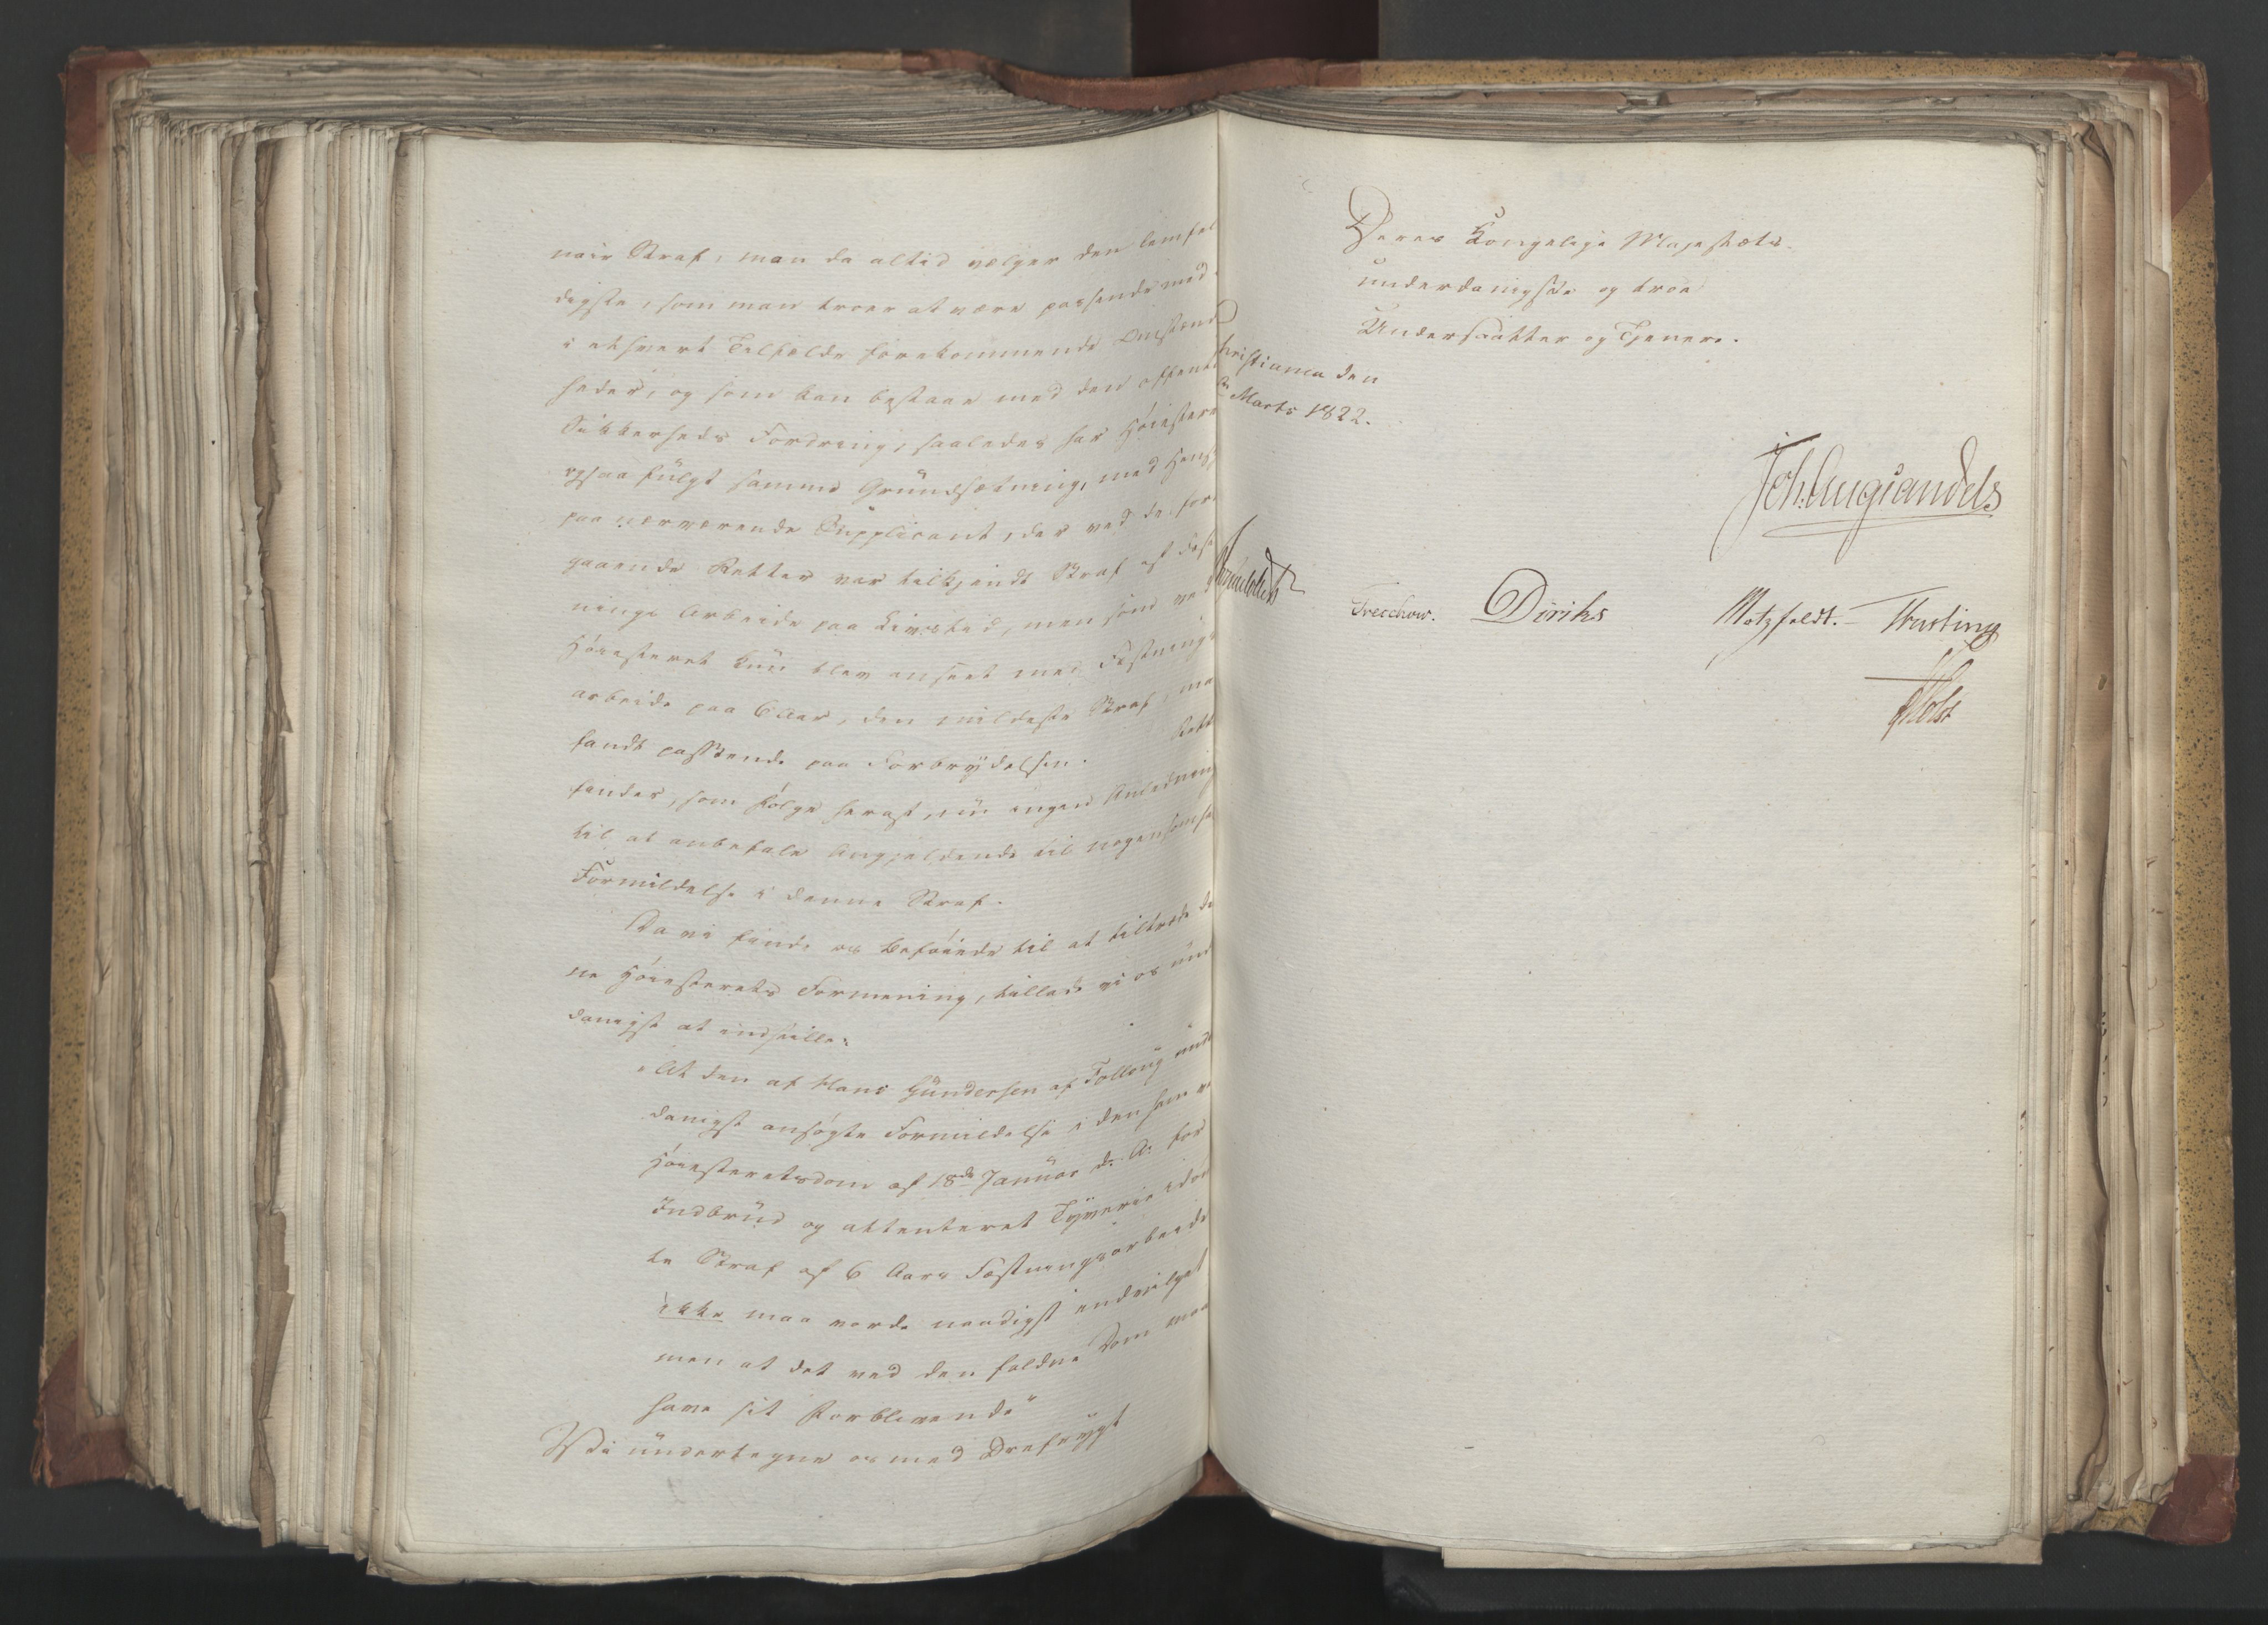 nair Straf, man da altid vælger den lemfæl
digste, som man troer at være passende med
i ethvert Tilfælde forekommende Omstænd
heder, og som kan bestaae med den offentl
Sikkerheds Fordring, saaledes har Høiester
ogsaa fulgt samme Grundsætning, med Hens
paa nærværende Supplicant, der ved de for
gaaende Retter var tilkjendt Straf af Fæst
nings Arbeide paa Livstid, men som ved
Høiesteret kun blev anseet med Fæstnings
arbeide paa 6 Aar, den mildeste Straf, ma
fandt passende paa Forbrydelsen. Rett
finder, som Følge heraf, nu ingen Anledning
til at anbefale Angjældende til nogensomhe
Formildelse i denne Straf.
Da vi finde os beføiede til at tiltræde de
ne Høiesterets Formening, tillade vi os und
danigst at indstille:
"At den af Hans Gundersen af Folloug und
danigst ansøgte Formildelse i den ham v
Høiesteretsdom af 18de Januar d. A. for
Indbrud og attenteret Tyverie idøm
te Straf af 6 Aars Fæstningsarbeide
ikke maa vorde naadigst indvilget
men at det ved den faldne Dom maa
have sit Forblivende"
Vi undertegne os med Dybeste

Deres Kongelige Majestæts
underdanigste og troe
Undersaatter og Tjenere.
hristiania den
Marts 1822.
Joh. Aug Sandels
Treschow. Diriks Motzfeldt. Fasting
Holst